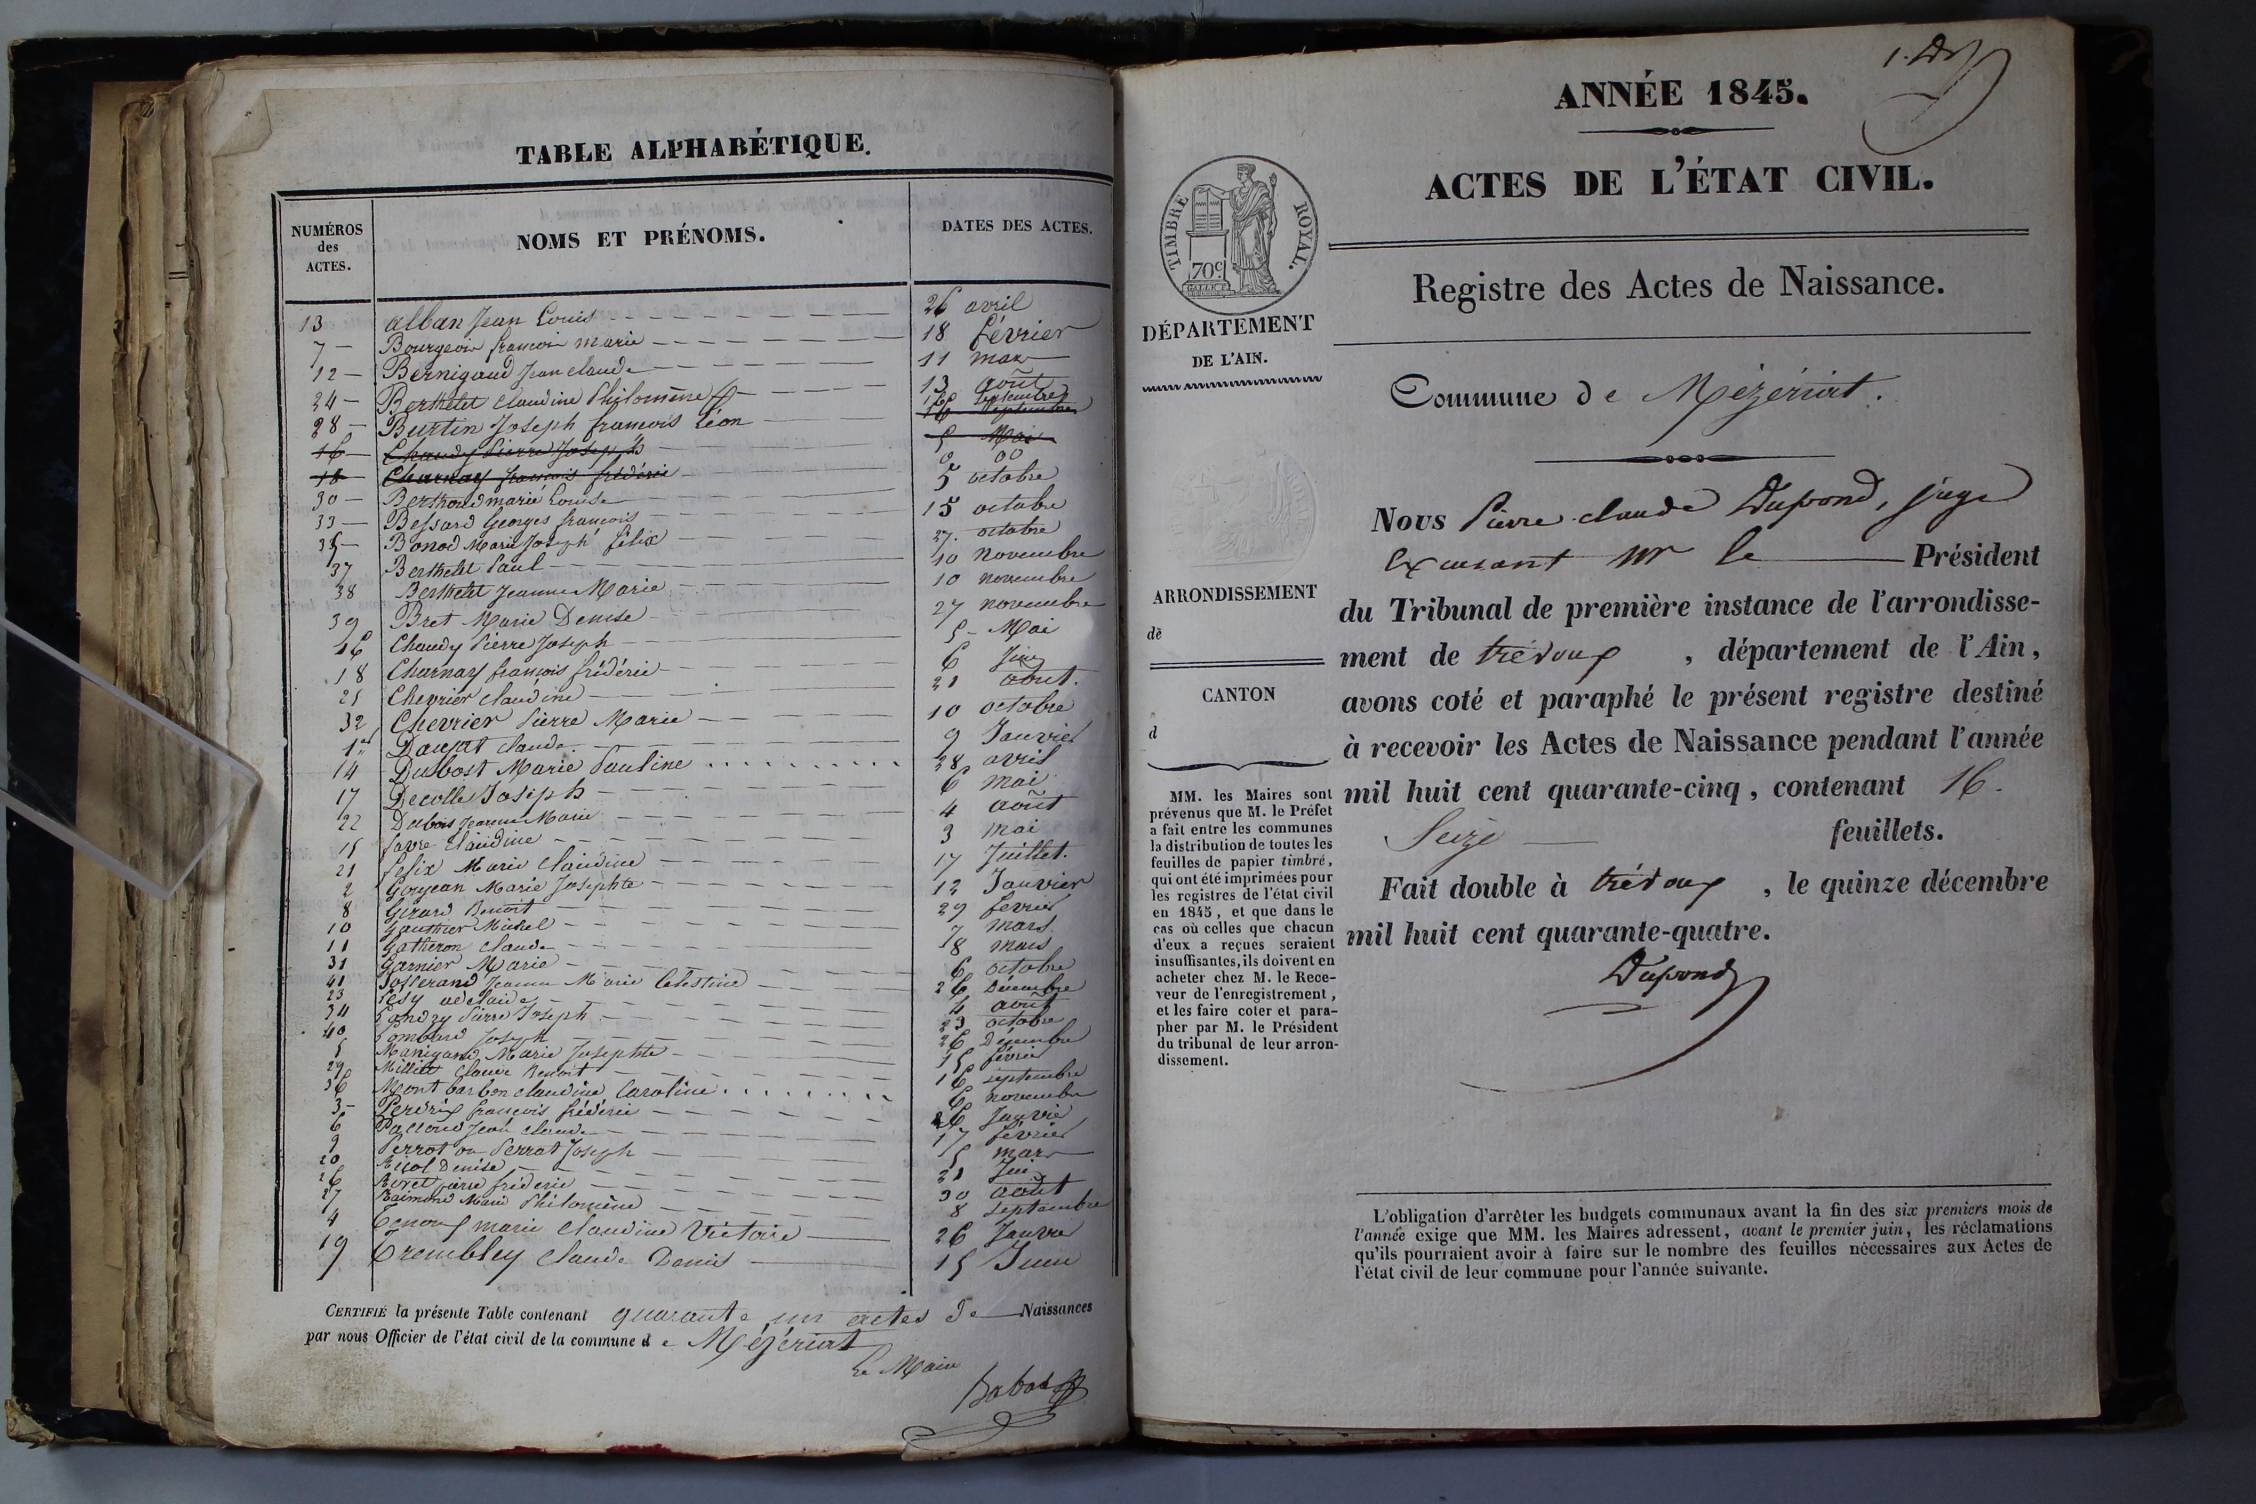 TABLE ALPHABÉTIQUE.
NUMÉROS des ACTES.
NOMS ET PRÉNOMS.
DATES DES ACTES.
13 alban Jean Louis 26 avril
7 Bourgeois françois marie 18 février
12 Bernigaud Jean claude 11 mars
24 Berthelet Claudine Philomène 13 août
28 Burtin Joseph françois Léon 16 septembre
16 Chaudy Pierre Joseph 5 Mai
18 Charnay françois frédéric
30 Berthoud marie Louise 5 octobre
33 Bessard Georges françois 15 octobre
35 Bonod Marie Joseph félix 27 octobre
37 Berthelet Paul 10 novembre
38 Berthelet Jeanne Marie 10 novembre
39 Bret Marie Denise 27 novembre
16 Chaudy Pierre Joseph 5 Mai
18 Charnay françois frédéric 6 Juin
25 Chevrier Claudine 21 aout.
32 Chevrier Pierre Marie 10 octobre
1er Daujat claude 9 Janvier
14 Dubost Marie Pauline 28 avril
17 Decolle Joseph 6 mai
22 Dubois Jeanne Marie 4 août
15 favre Claudine 3 mai
21 felix Marie Claudine 17 Juillet.
2 Goyjean Marie Josephte 12 Janvier
8 Girard Benoît 29 fevrier
10 Gauthier Michel 7 mars
11 Gatheron Claude 8 mars
31 Garnier Marie 6 octobre
41 Josserand Jeanne Marie Celestine 26 Décembre
23 Lesy adelaide 4 août
34 Pierre Joseph 23 octobre
40 Lombard Joseph 26 Décembre
5 Manigand Marie Josephte 15 février
29 Millet Claude Benoit 16 septembre
36 Montbarbon claudine Caroline 6 novembre
3 Perdrix françois frédéric 26 Janvier
6 Pacoud Jean claude 17 février
9 Perrot ou Perrat Joseph 5 mars
20 Denise 21 Juin
26 pierre fréderic 30 août
27 Raimond Marie Philomène 8 septembre
4 marie Claudine Victoire 26 Janvier
19 Trembley Claude Denis 15 Juin
CERTIFIÉ la présente Table contenant quarante un actes de Naissances
par nous Officier de l'état civil de la commune de Mézériat
Le Maire
ANNÉE 1845.
ACTES DE L'ÉTAT CIVIL.
TIMBRE ROYAL.
70c.
Registre des Actes de Naissance.
DÉPARTEMENT
DE L'AIN.
Commune de Mézériat.
Nous Pierre claude Dupond, juge
Excusant Mr le Président
ARRONDISSEMENT
de
du Tribunal de première instance de l'arrondisse-
ment de trévoux, département de l'Ain,
CANTON
d
avons coté et paraphé le présent registre destiné
à recevoir les Actes de Naissance pendant l'année
mil huit cent quarante-cinq, contenant 16.
Seize feuillets.
Fait double à trévoux, le quinze décembre
mil huit cent quarante-quatre.
Dupond
MM. les Maires sont
prévenus que M. le Préfet
a fait entre les communes
la distribution de toutes les
feuilles de papier timbré,
qui ont été imprimées pour
les registres de l'état civil
en 1845, et que dans le
cas où celles que chacun
d'eux a reçues seraient
insuffisantes, ils doivent en
acheter chez M. le Rece-
veur de l'enregistrement,
et les faire coter et para-
pher par M. le Président
du tribunal de leur arron-
dissement.
L'obligation d'arrêter les budgets communaux avant la fin des six premiers mois de
l'année exige que MM. les Maires adressent, avant le premier juin, les réclamations
qu'ils pourraient avoir à faire sur le nombre des feuilles nécessaires aux Actes de
l'état civil de leur commune pour l'année suivante.